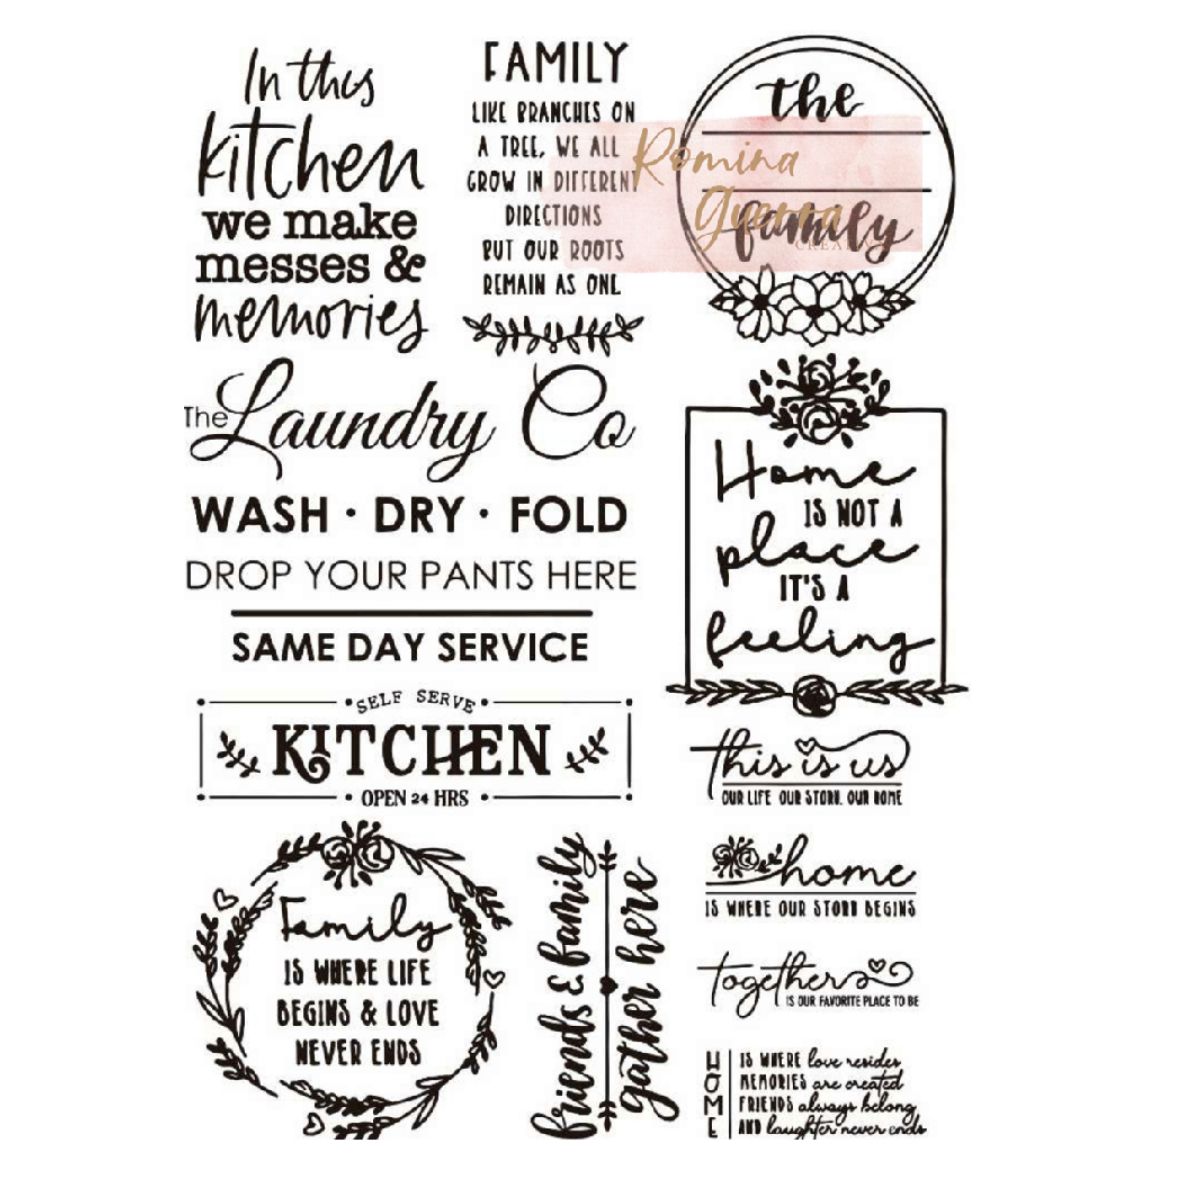 In this
kitchen
we make
messes &
memories
FAMILY
LIKE BRANCHES ON
A TREE, WE ALL
GROW IN DIFFERENT
DIRECTIONS
BUT OUR ROOTS
REMAIN AS ONE
the
family
Romina
Guerra
The Laundry Co
WASH · DRY · FOLD
DROP YOUR PANTS HERE
SAME DAY SERVICE
Home
IS NOT A
place
IT'S A
feeling
SELF SERVE
KITCHEN
OPEN 24 HRS
this is us
OUR LIFE OUR STORY. OUR HOME
home
IS WHERE OUR STORY BEGINS
together
IS OUR FAVORITE PLACE TO BE
Family
IS WHERE LIFE
BEGINS & LOVE
NEVER ENDS
friends & family
gather here
HOME
IS WHERE love resides
MEMORIES are created
FRIENDS always belong
AND laughter never ends